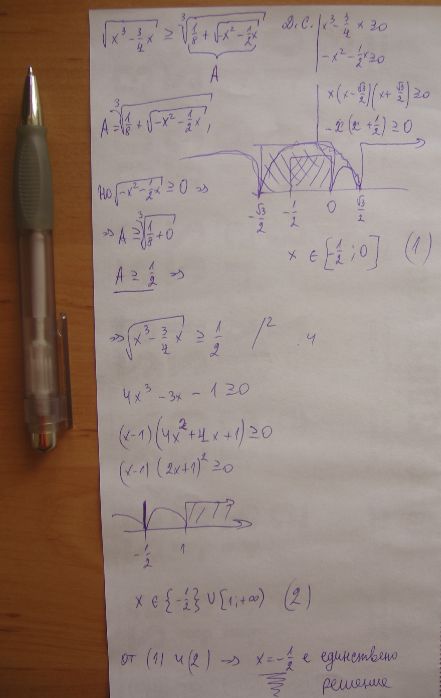 √(x³-3/4x) ≥ ∛(1/8+√(-x²-1/2x))
A
Д.С. | x³-3/4x ≥0
-x²-1/2x ≥0
x(x-√3/2)(x+√3/2) ≥0
-x(x+1/2) ≥0
A=∛(1/8+√(-x²-1/2x)),
-√3/2 -1/2 0 √3/2
но √(-x²-1/2x) ≥0 ⇒
⇒ A ≥ ∛(1/8+0)
x ∈ [-1/2;0] (1)
A ≥ 1/2 ⇒
⇒ √(x³-3/4x) ≥ 1/2 /² .4
4x³-3x-1≥0
(x-1)(4x²+4x+1)≥0
(x-1)(2x+1)²≥0
-1/2 1
x∈{-1/2}∪[1,+∞) (2)
от (1) и (2) ⇒ x=-1/2 е единствено
решение